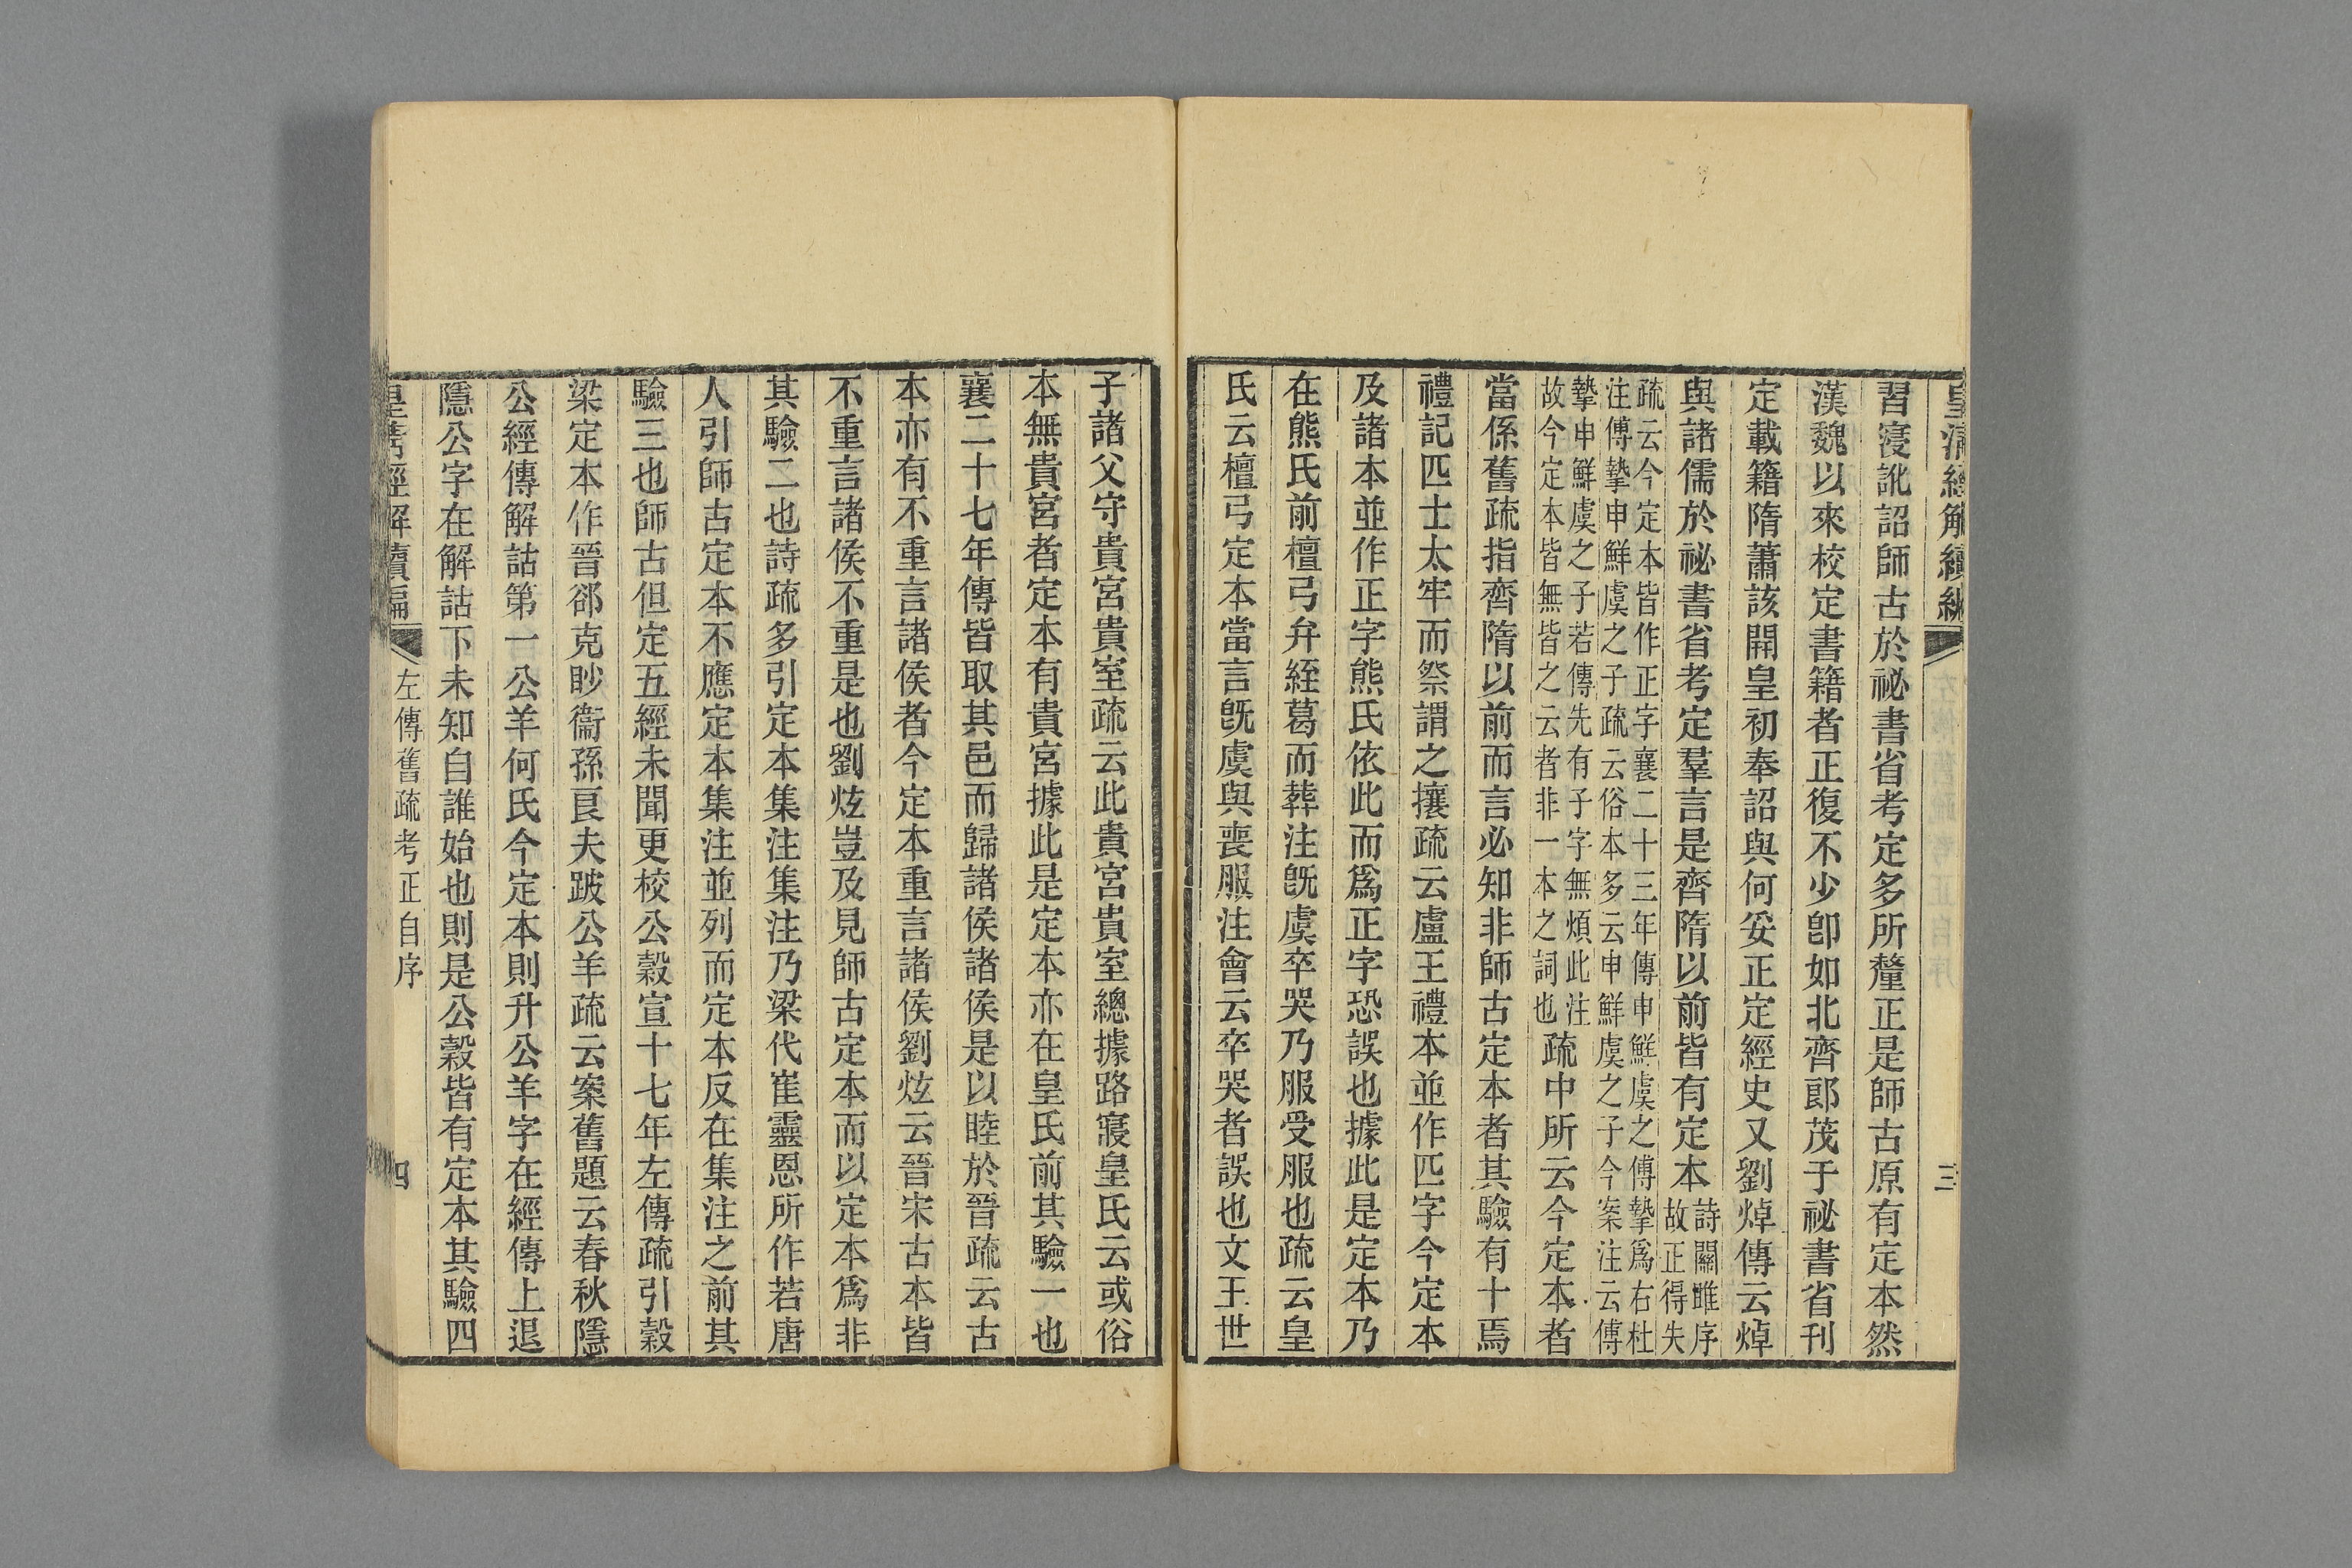 皇清經解續編
三
習寖訛詔師古於祕書省考定多所釐正是師古原有定本然
漢魏以來校定書籍者正復不少卽如北齊郎茂于祕書省刊
定載籍隋蕭該開皇初奉詔與何妥正定經史又劉焯傳云焯
與諸儒於祕書省考定羣言是齊隋以前皆有定本詩關雎序
故正得失
疏云今定本皆作正字襄二十三年傳申鮮虞之傅摯爲右杜
注傅摯申鮮虞之子疏云俗本多云申鮮虞之子今案注云傅
摯申鮮虞之子若傳先有子字無煩此注
故今定本皆無皆之云者非一本之詞也疏中所云今定本者
當係舊疏指齊隋以前而言必知非師古定本者其驗有十焉
禮記匹士太牢而祭謂之攘疏云盧王禮本並作匹字今定本
及諸本並作正字熊氏依此而爲正字恐誤也據此是定本乃
在熊氏前檀弓弁絰葛而葬注旣虞卒哭乃服受服也疏云皇
氏云檀弓定本當言旣虞與喪服注會云卒哭者誤也文王世
子諸父守貴宮貴室疏云此貴宮貴室總據路寢皇氏云或俗
本無貴宮者定本有貴宮據此是定本亦在皇氏前其驗一也
襄二十七年傳皆取其邑而歸諸侯諸侯是以睦於晉疏云古
本亦有不重言諸侯者今定本重言諸侯劉炫云晉宋古本皆
不重言諸侯不重是也劉炫豈及見師古定本而以定本爲非
其驗二也詩疏多引定本集注集注乃梁代崔靈恩所作若唐
人引師古定本不應定本集注並列而定本反在集注之前其
驗三也師古但定五經未聞更校公穀宣十七年左傳疏引穀
梁定本作晉郤克眇衞孫良夫跛公羊疏云案舊題云春秋隱
公經傳解詁第一公羊何氏今定本則升公羊字在經傳上退
隱公字在解詁下未知自誰始也則是公穀皆有定本其驗四
皇清經解續編
左傳舊疏考正自序
四